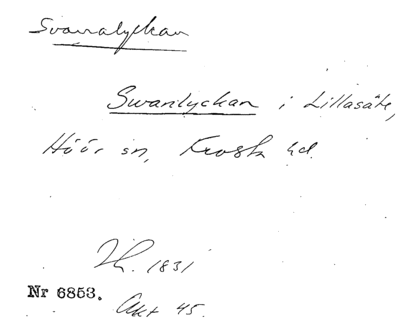 Svanalyckan
Swanlyckan i Lillasäte,
Höör sn, Frosta hd.
1831
Nr 6853.
Akt 45.